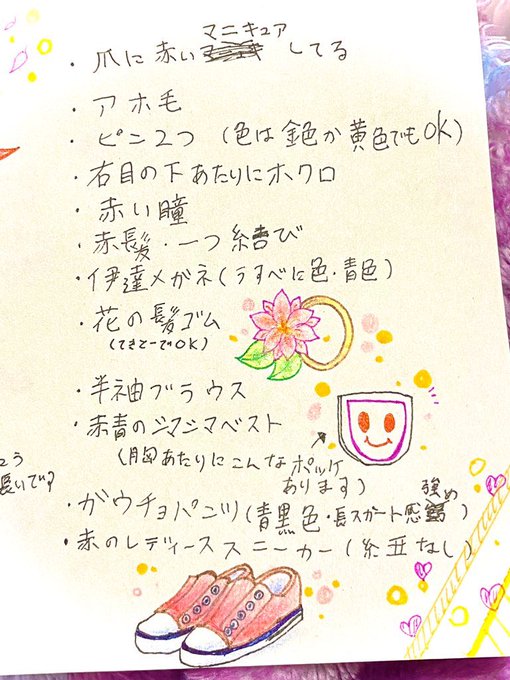 ・爪に赤いマニキュアしてる
・アホ毛
・ピン2つ (色は金色か黄色でもOK)
・右目の下あたりにホクロ
・赤い瞳
・赤髪・一つ結び
・伊達メガネ(うすべに色・青色)
・花の髪ゴム
(てきとーでOK)
・半袖ブラウス
・赤青のシマシマベスト
(胸あたりにこんなポッケ
あります)
・ガウチョパンツ(青黒色・長スカート感強め)
・赤のレディーススニーカー(紐なし)